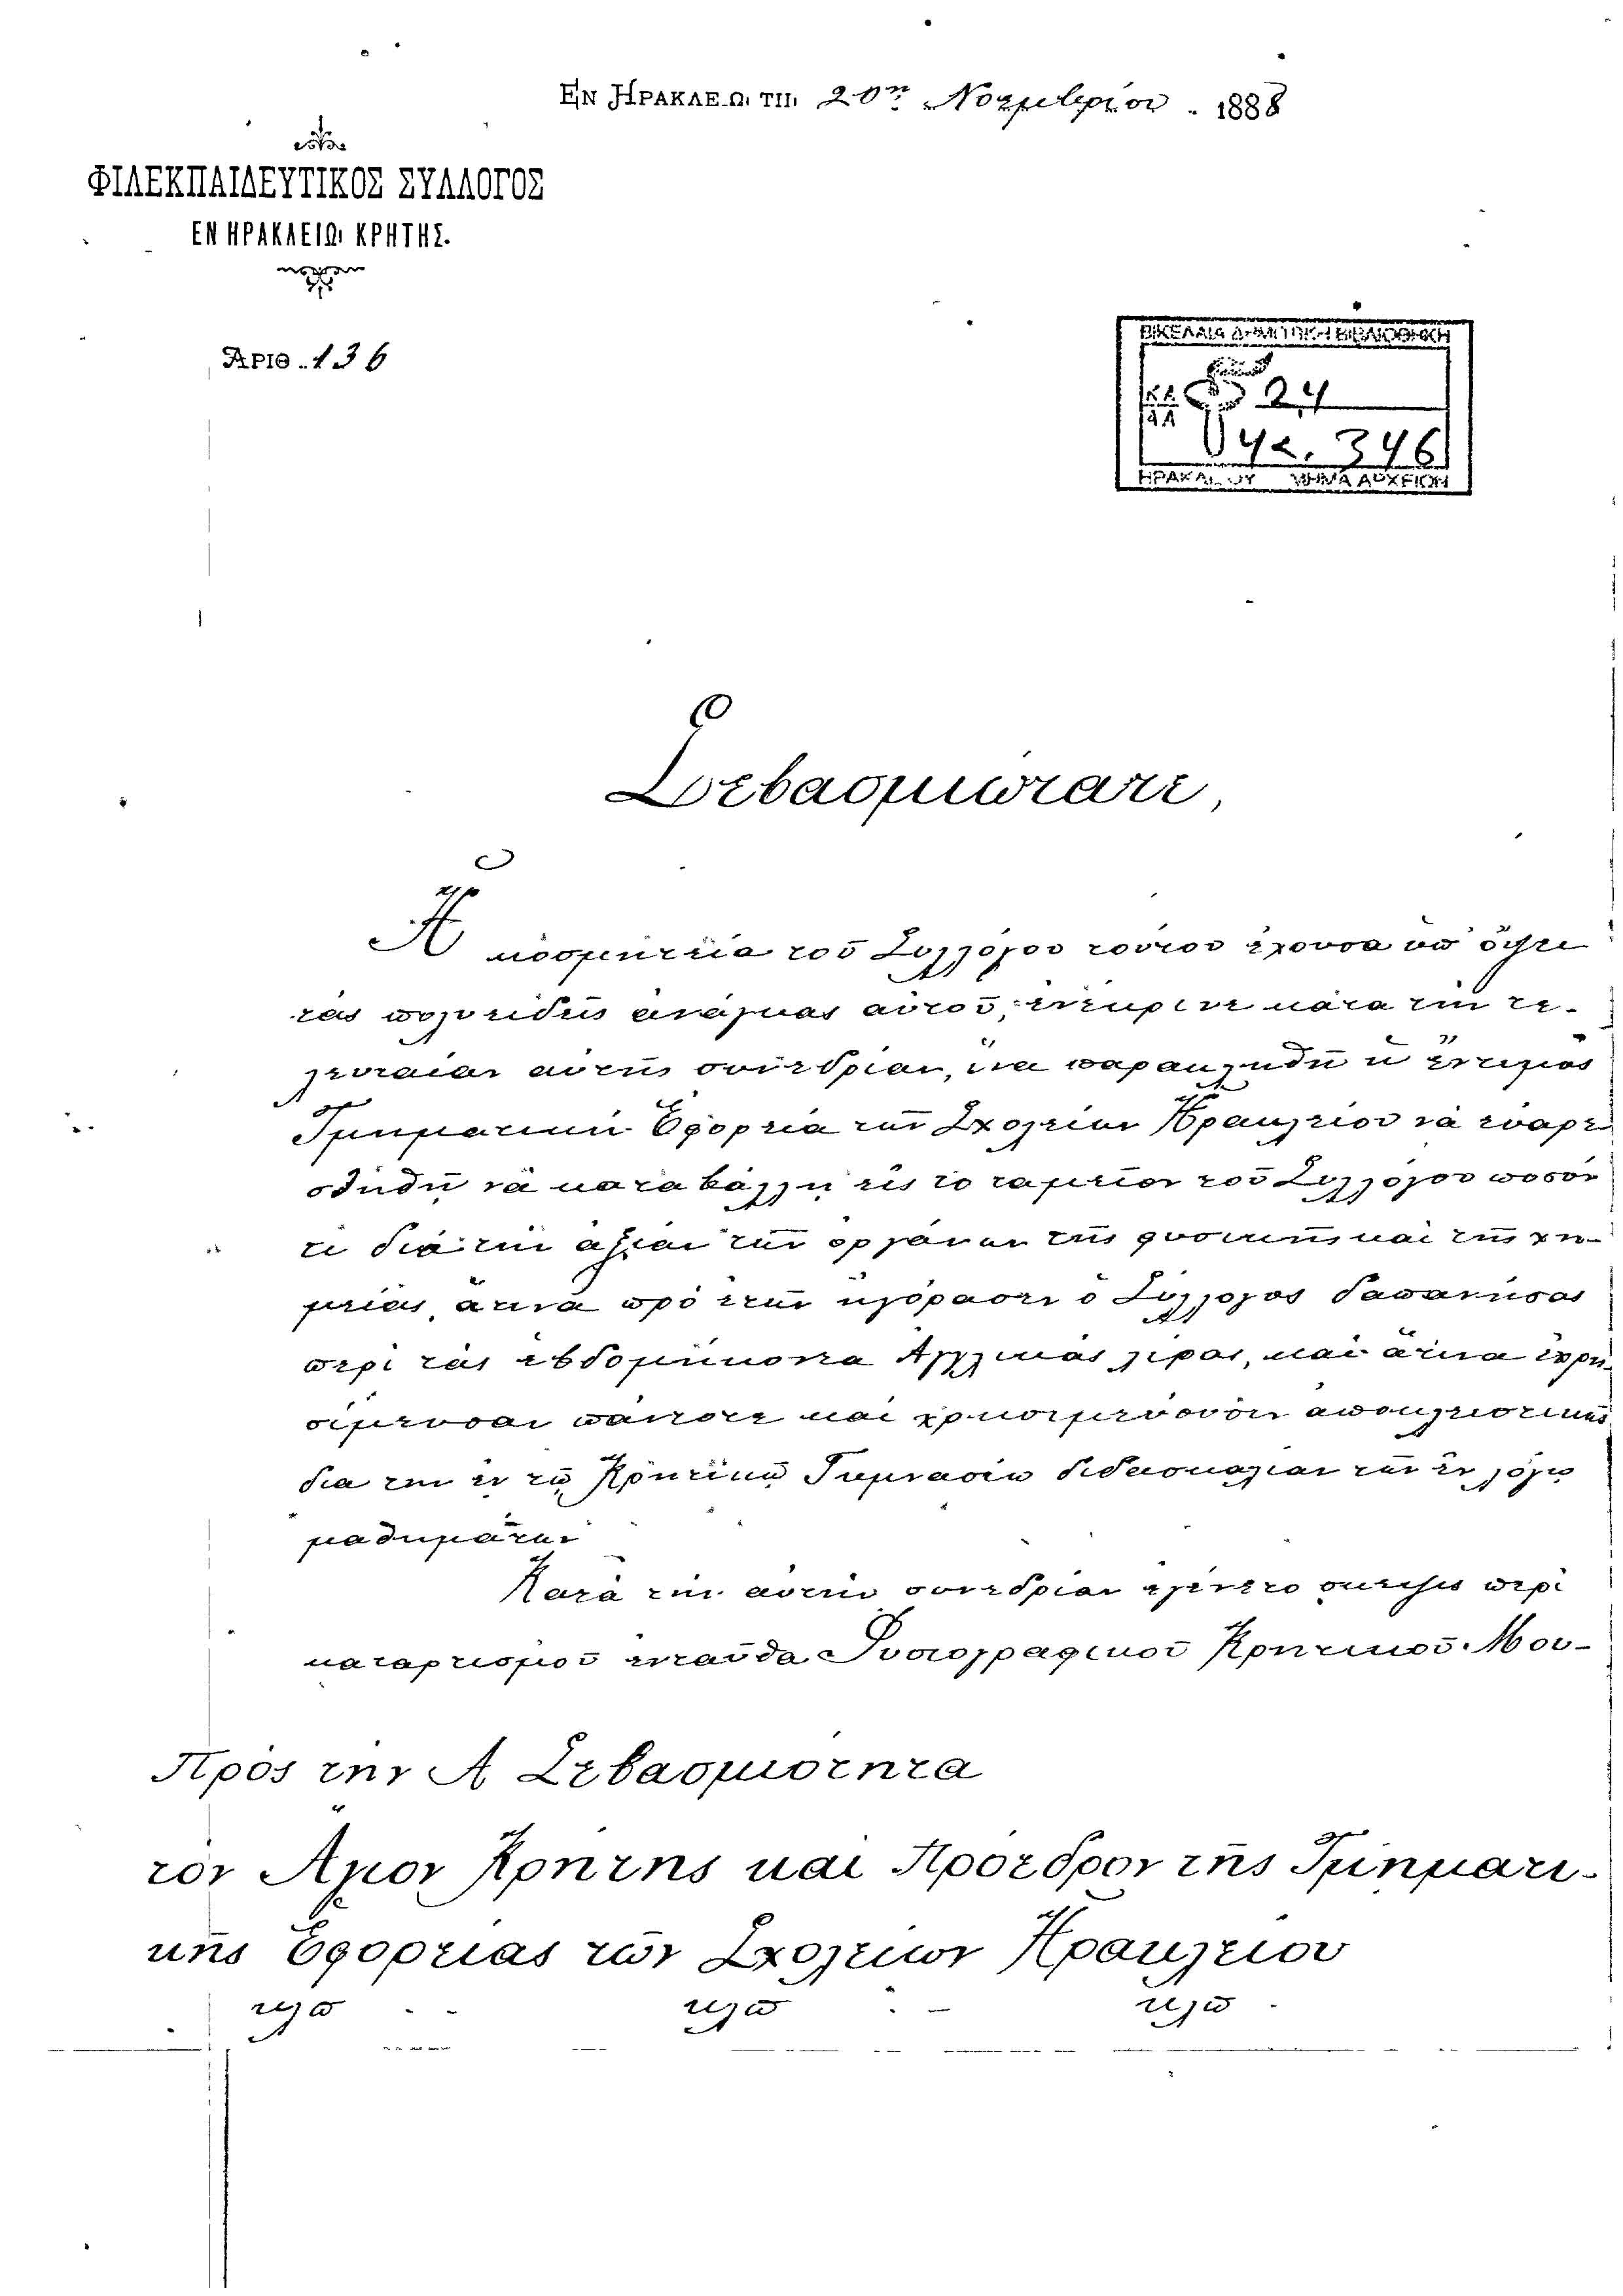 ΕΝ ΗΡΑΚΛΕΙΩ ΤΗ 20ῃ Νοεμβρίου 1888
ΦΙΛΕΚΠΑΙΔΕΥΤΙΚΟΣ ΣΥΛΛΟΓΟΣ
ΕΝ ΗΡΑΚΛΕΙΩι ΚΡΗΤΗΣ.
ΑΡΙΘ. 136
ΒΙΚΕΛΑΙΑ ΔΗΜΟΤΙΚΗ ΒΙΒΛΙΟΘΗΚΗ
24
346
ΗΡΑΚΛΕΙΟΥ ΤΜΗΜΑ ΑΡΧΕΙΩΝ
Σεβασμιώτατε,
Ἡ κοσμητεία τοῦ Συλλόγου τούτου ἔχουσα ὑπ' ὄψει
τὰς πολυειδεῖς ἀνάγκας αὐτοῦ, ἐνέκρινε κατὰ τὴν τε-
λευταίαν αὐτῆς συνεδρίαν, ἵνα παρακληθῇ ἡ ἔντιμος
Τμηματικὴ Ἐφορεία τῶν Σχολείων Ἡρακλείου νὰ εὐαρε
στηθῇ νὰ καταβάλῃ εἰς τὸ ταμεῖον τοῦ Συλλόγου ποσόν
τι διὰ τὴν ἀξίαν τῶν ὀργάνων τῆς φυσικῆς καὶ τῆς χη-
μείας, ἅτινα πρὸ ἐτῶν ἠγόρασεν ὁ Σύλλογος δαπανήσας
περὶ τὰς ἑβδομήκοντα Ἀγγλικὰς λίρας, καὶ ἅτινα ἐχρη-
σίμευσαν πάντοτε καὶ χρησιμεύουσιν ἀποκλειστικῶς
διὰ τὴν ἐν τῷ Κρητικῷ Γυμνασίῳ διδασκαλίαν τῶν ἐν λόγῳ
μαθημάτων
Κατὰ τὴν αὐτὴν συνεδρίαν ἐγένετο σκέψις περὶ
καταρτισμοῦ ἐνταῦθα Φυσιογραφικοῦ Κρητικοῦ Μου-
Πρὸς τὴν Α Σεβασμιότητα
τὸν Ἅγιον Κρήτης καὶ Πρόεδρον τῆς Τμηματι-
κῆς Ἐφορείας τῶν Σχολείων Ἡρακλείου